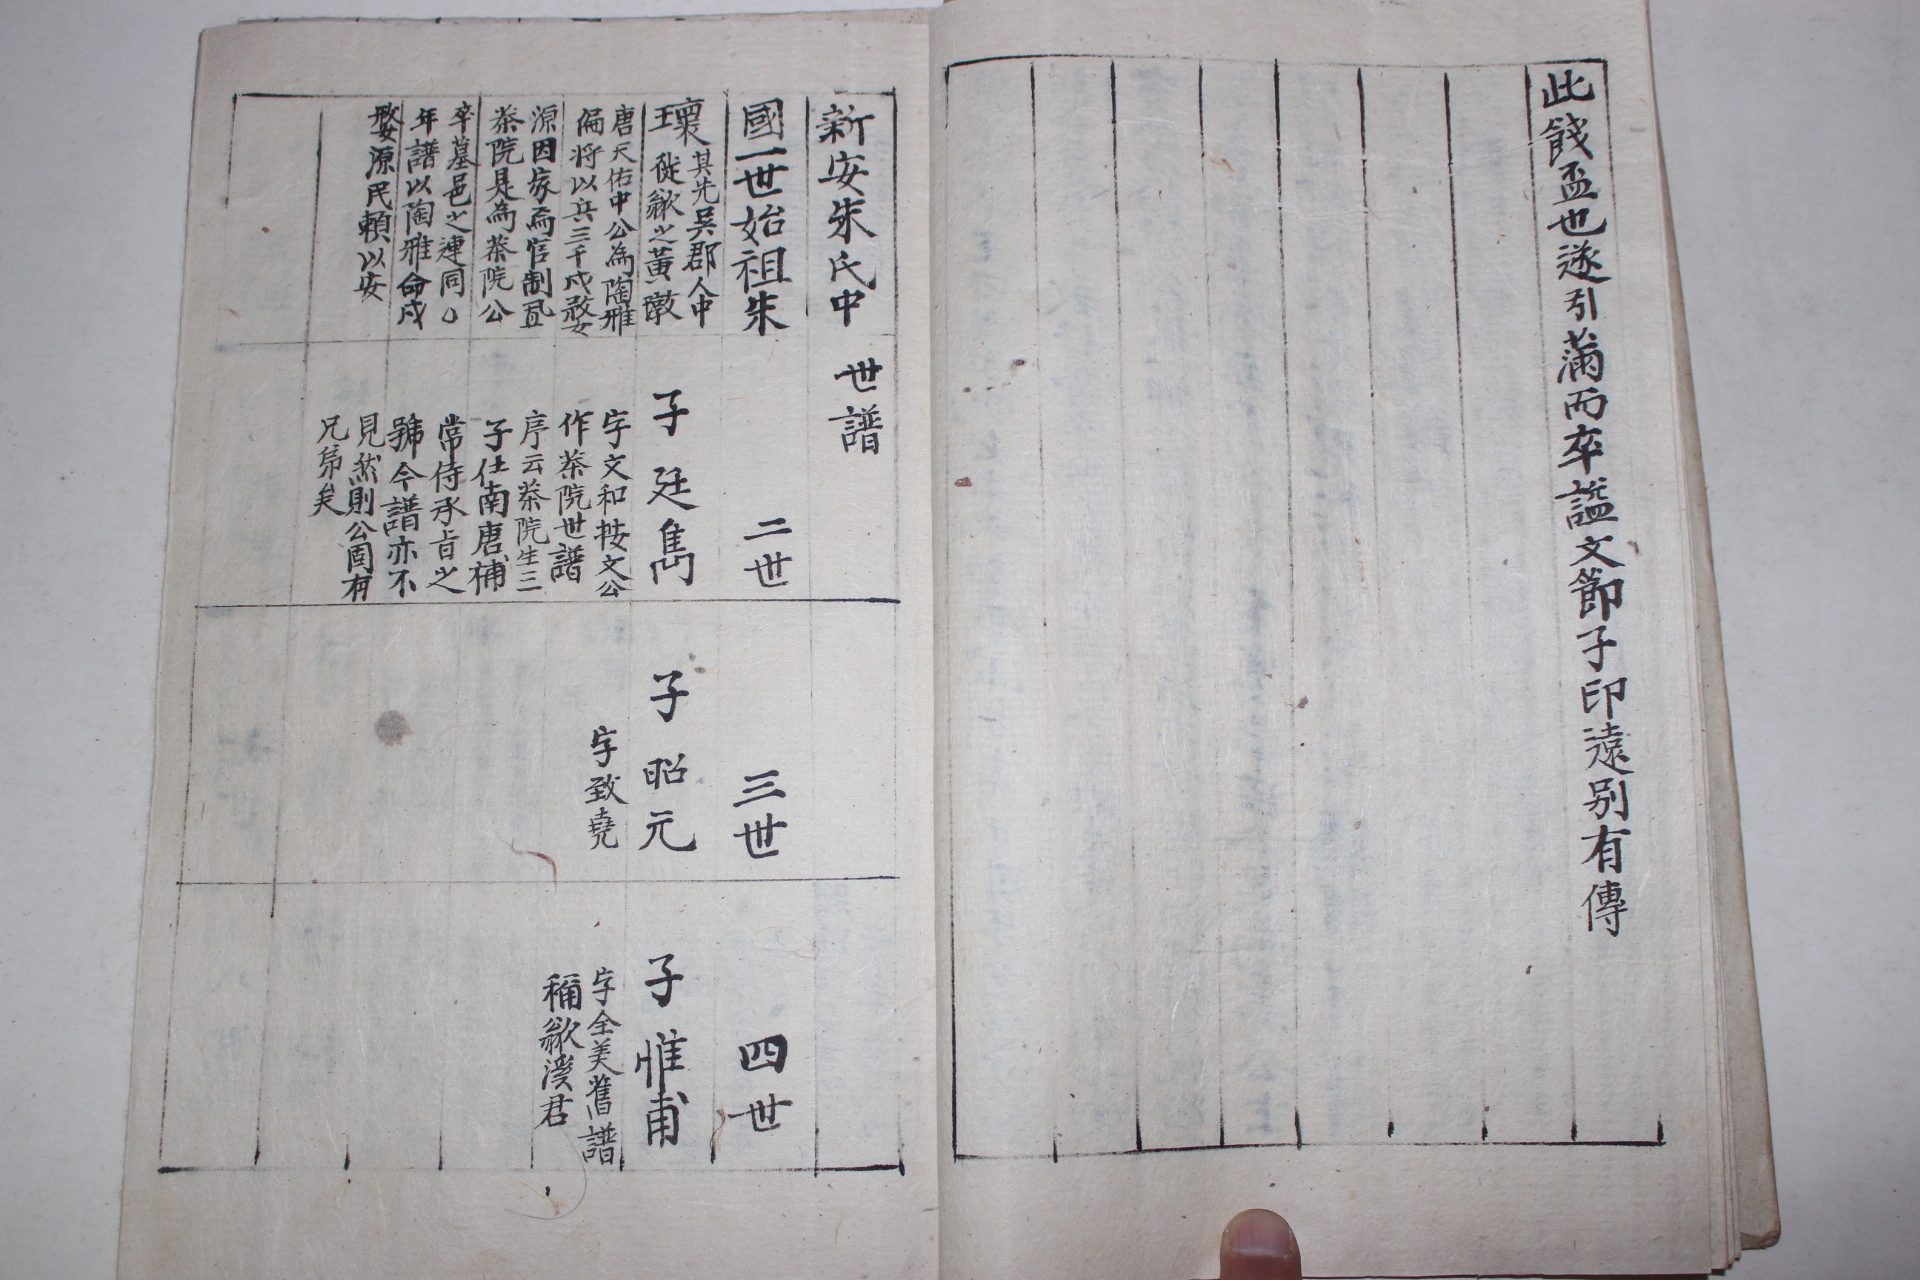 此餞盃也遂引滿而卒謚文節子印遠別有傳
新安朱氏中
世譜
國一世始祖朱
瓌其先吳郡人中
徙歙之黃墩
唐天佑中公為陶雅
偏將以兵三千戍婺
源因家焉官制置
茶院是為茶院公
卒墓邑之連同。
年譜以陶雅命戍
婺源民賴以安
二世
子廷雋
字文和按文公
作茶院世譜
序云茶院生三
子仕南唐補
常侍承旨之
號今譜亦不
見然則公固有
兄弟矣
三世
子昭元
字致堯
四世
子惟甫
字全美舊譜
稱歙溪君